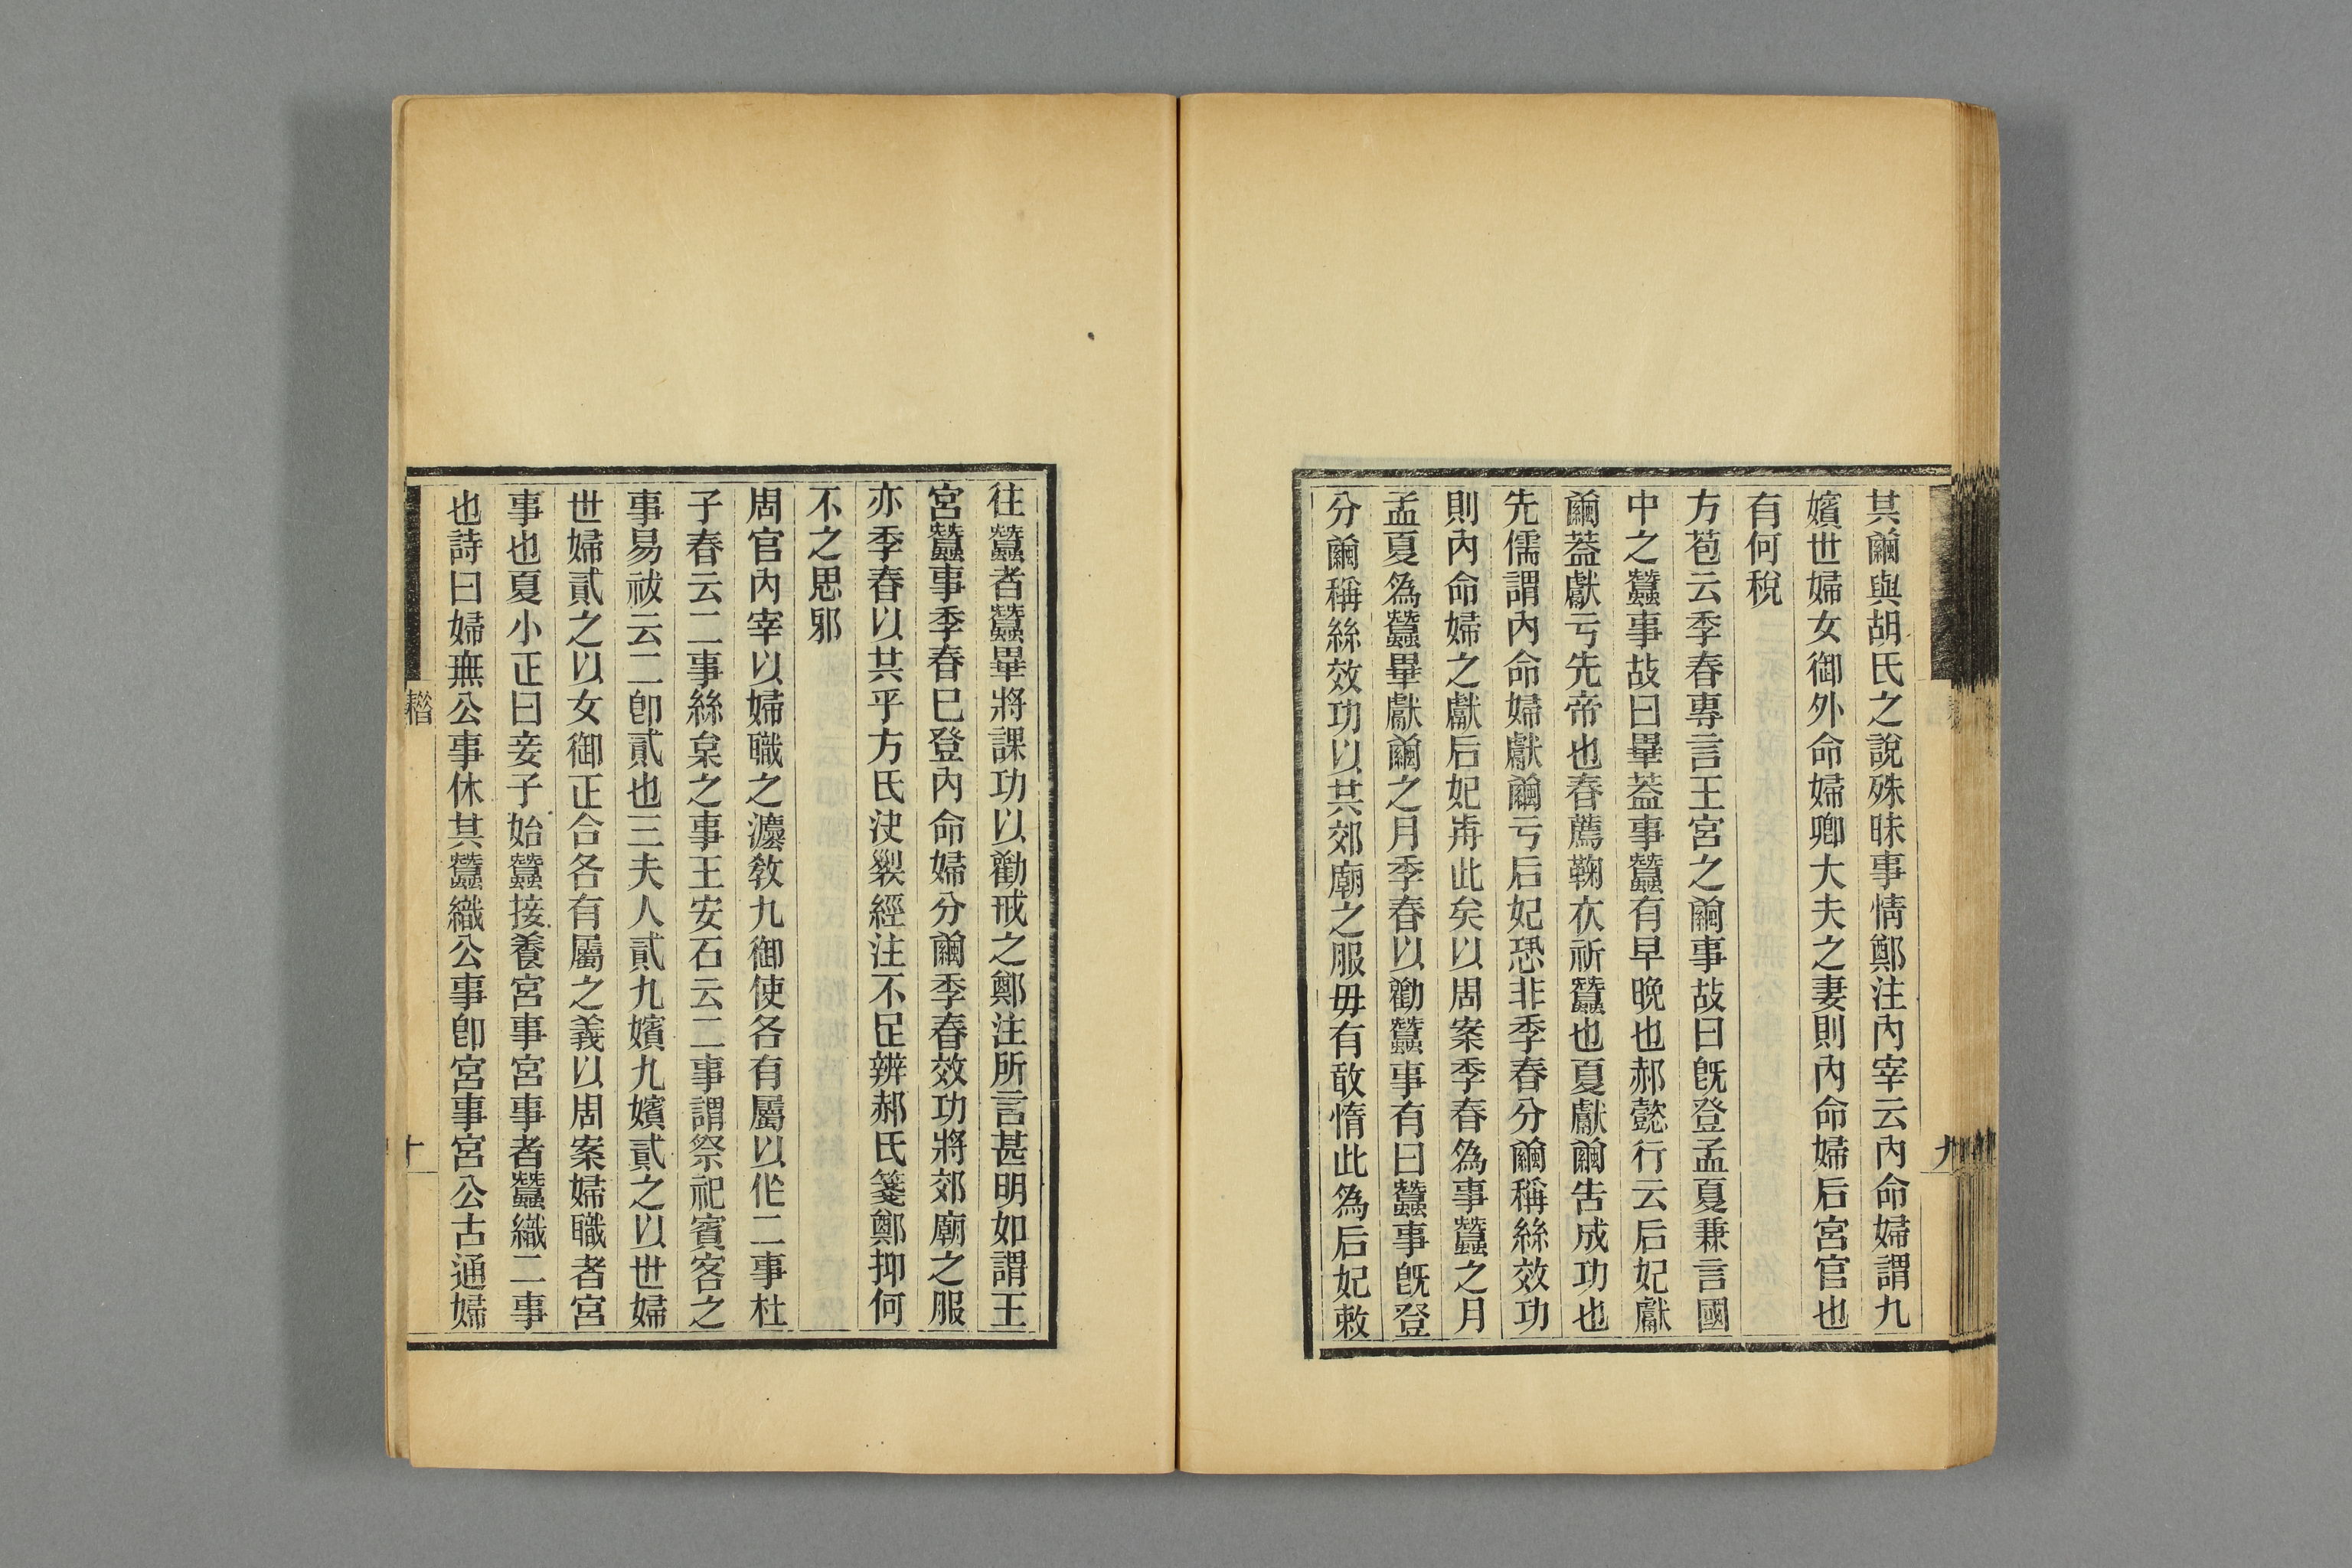 其繭與胡氏之說殊昧事情鄭注內宰云內命婦謂九
嬪世婦女御外命婦卿大夫之妻則內命婦后宮官也
有何稅
方苞云季春專言王宮之繭事故曰旣登孟夏兼言國
中之蠶事故曰畢葢事蠶有早晚也郝懿行云后妃獻
繭葢獻亏先帝也春薦鞠衣祈蠶也夏獻繭告成功也
先儒謂內命婦獻繭亏后妃恐非季春分繭稱絲效功
則內命婦之獻后妃歬此矣以周案季春為事蠶之月
孟夏為蠶畢獻繭之月季春以勸蠶事有曰蠶事旣登
分繭稱絲效功以共郊廟之服毋有敢惰此為后妃敕
往蠶者蠶畢將課功以勸戒之鄭注所言甚明如謂王
宮蠶事季春巳登內命婦分繭季春效功將郊廟之服
亦季春以共乎方氏決裂經注不足辨郝氏箋鄭抑何
不之思邪
周官內宰以婦職之灋敎九御使各有屬以作二事杜
子春云二事絲枲之事王安石云二事謂祭祀賓客之
事易祓云二卽貳也三夫人貳九嬪九嬪貳之以世婦
世婦貳之以女御正合各有屬之義以周案婦職者宮
事也夏小正曰妾子始蠶接養宮事宮事者蠶織二事
也詩曰婦無公事休其蠶織公事卽宮事宮公古通婦
九
十